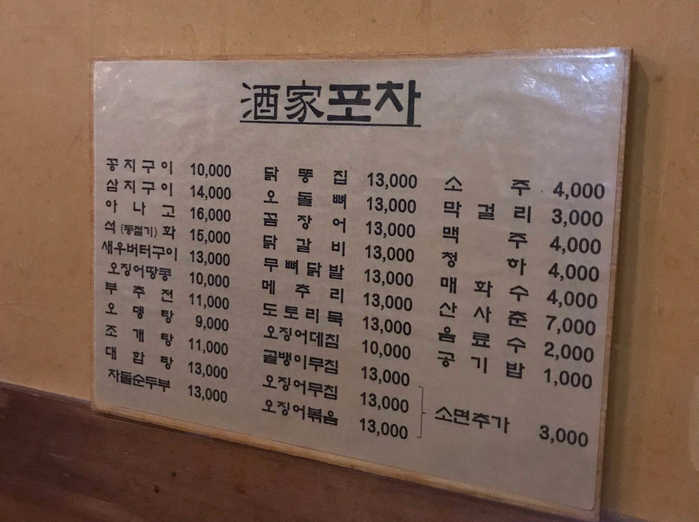 酒家포차
꽁치구이 10,000
삼치구이 14,000
아나고 16,000
석(동절기)화 15,000
새우버터구이 13,000
오징어땅콩 10,000
부추전 11,000
오뎅탕 9,000
조개탕 11,000
대합탕 13,000
차돌순두부 13,000
닭똥집 13,000
오돌뼈 13,000
꼼장어 13,000
닭갈비 13,000
무뼈닭발 13,000
메추리 13,000
도토리묵 13,000
오징어데침 10,000
골뱅이무침 13,000
오징어무침 13,000
오징어볶음 13,000
소주 4,000
막걸리 3,000
맥주 4,000
청하 4,000
매화수 4,000
산사춘 7,000
음료수 2,000
공기밥 1,000
소면추가 3,000